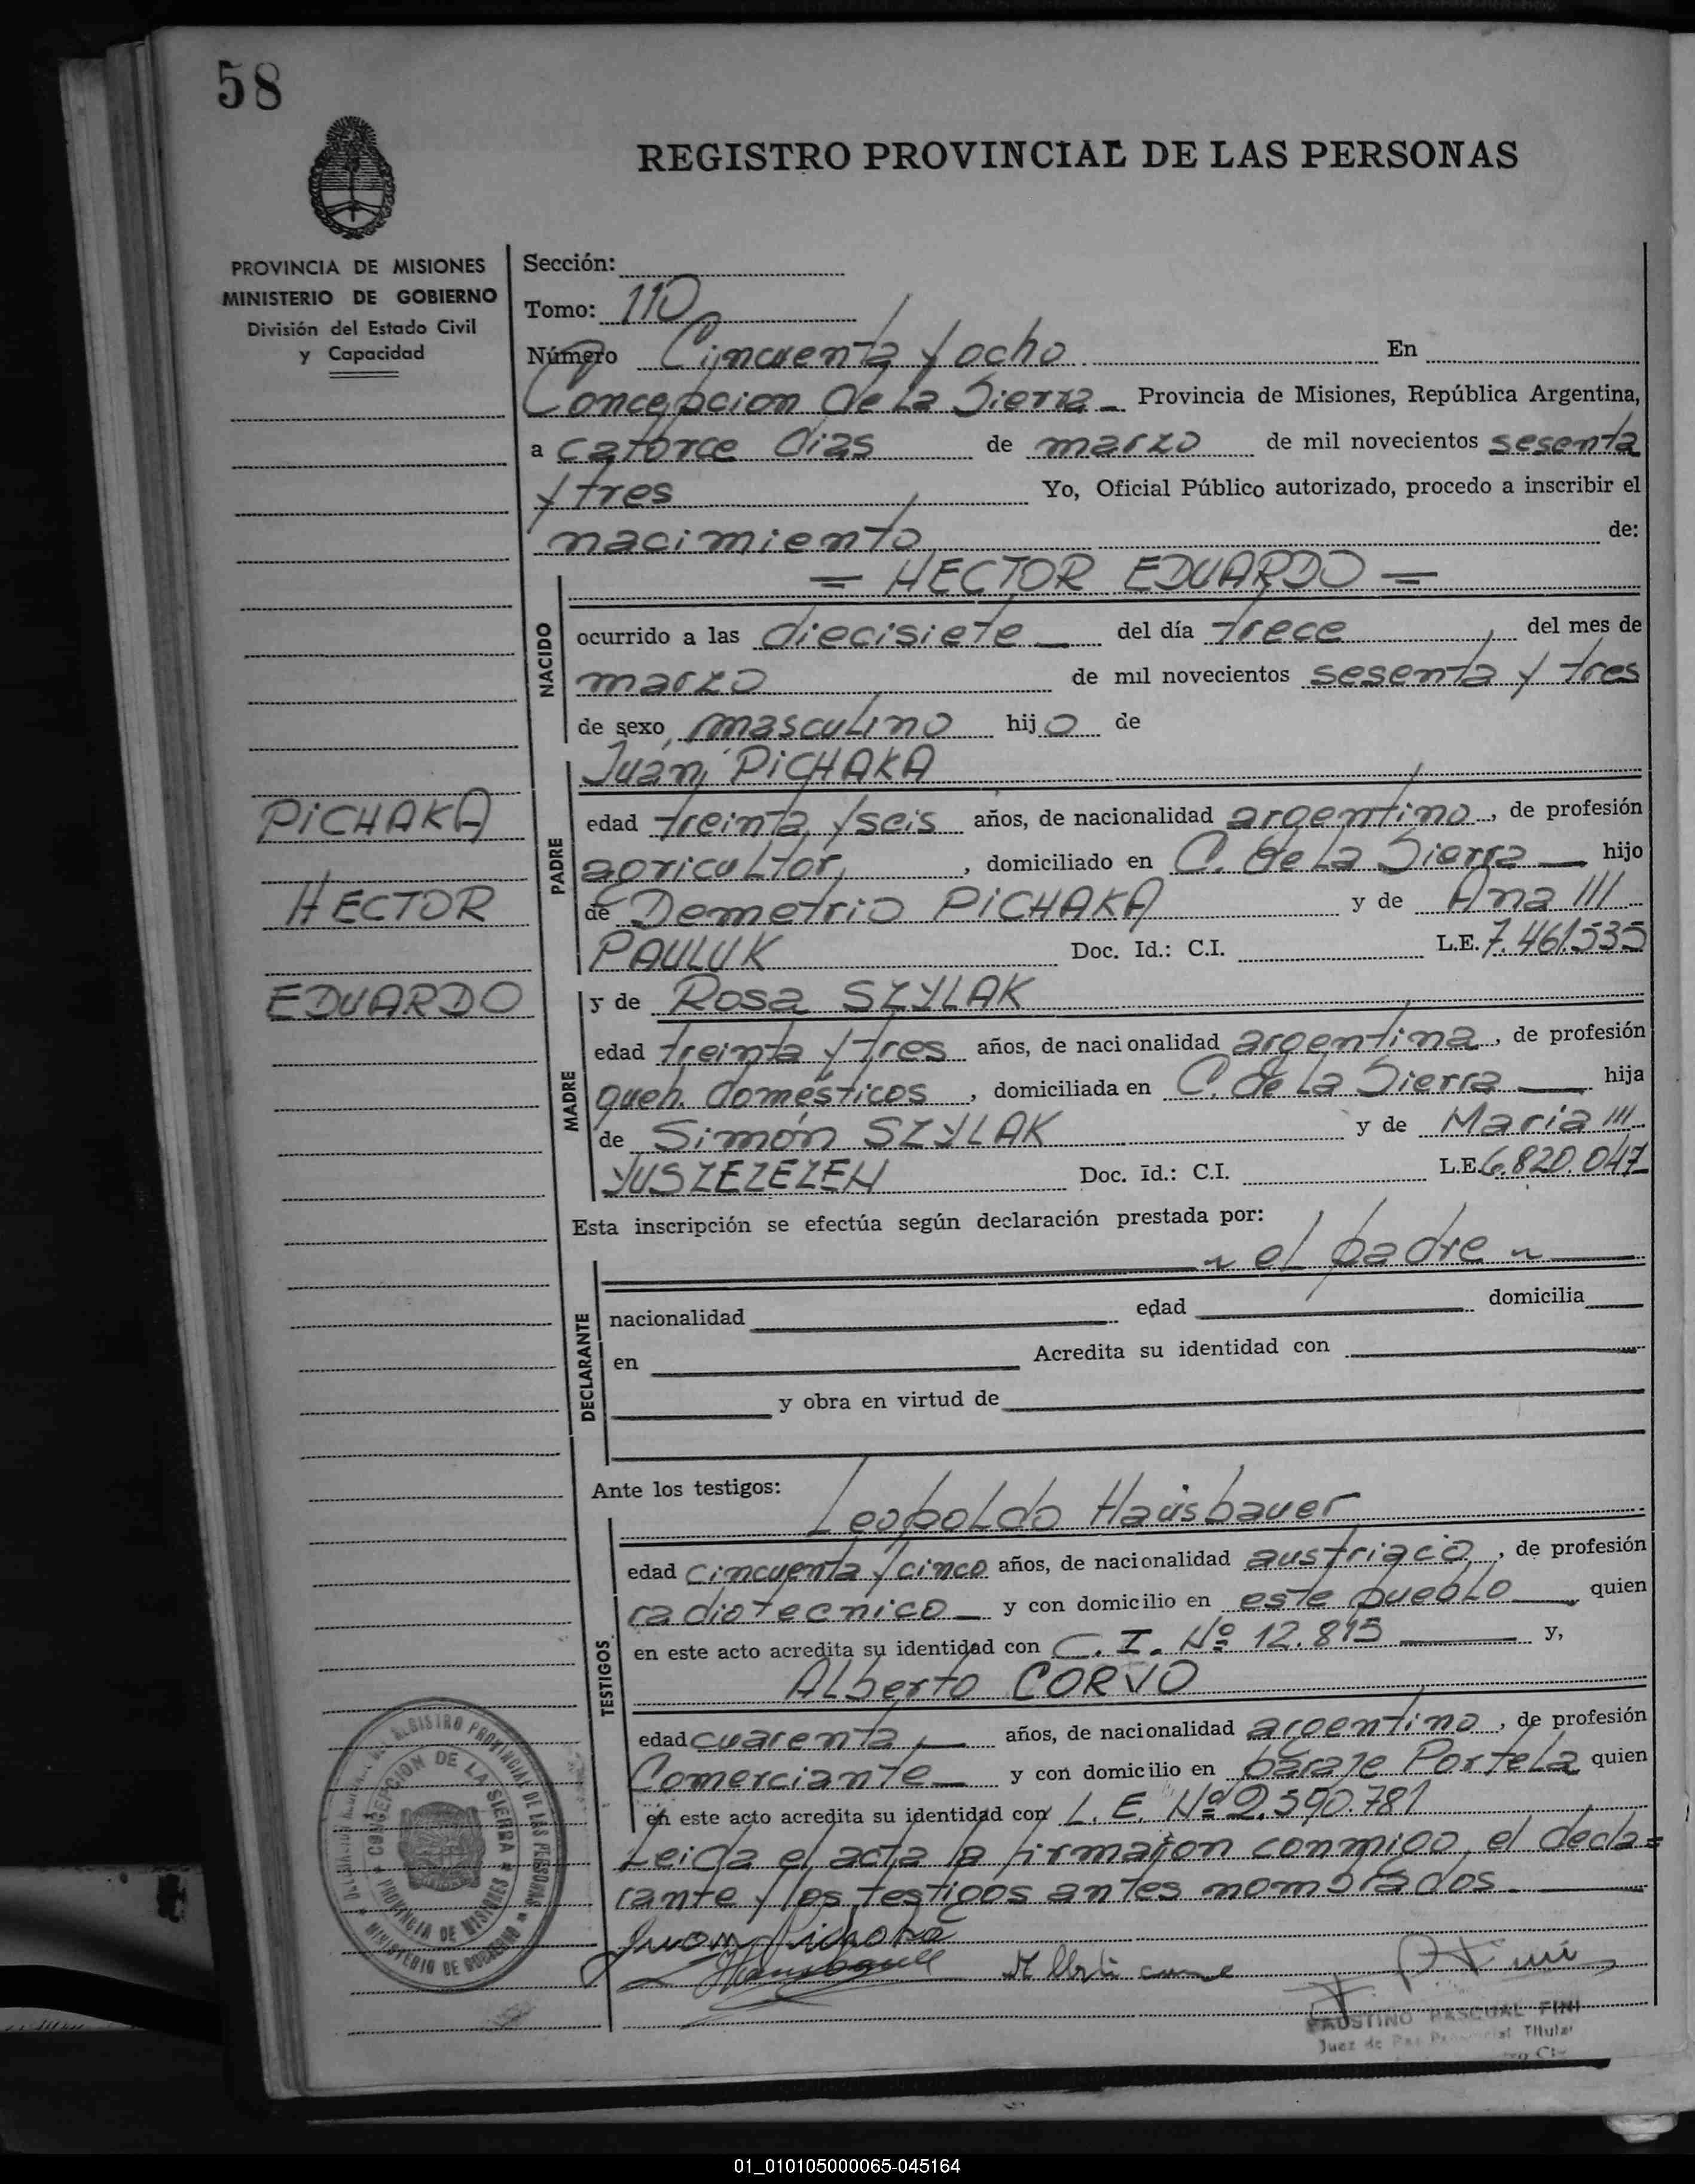 58
REGISTRO PROVINCIAL DE LAS PERSONAS
PROVINCIA DE MISIONES
MINISTERIO DE GOBIERNO
División del Estado Civil
y Capacidad
Sección:
Tomo: 110
Número Cincuenta y ocho En
Concepcion de la Sierra Provincia de Misiones, República Argentina,
a catorce dias de marzo de mil novecientos sesenta
y tres Yo, Oficial Público autorizado, procedo a inscribir el
nacimiento de:
= HECTOR EDUARDO =
NACIDO
ocurrido a las diecisiete del día trece del mes de
marzo de mil novecientos sesenta y tres
de sexo masculino hijo de
PADRE
Juan PiCHAKA
edad treinta y seis años, de nacionalidad argentino, de profesión
agricultor, domiciliado en C. de la Sierra hijo
de Demetrio PiCHAKA y de Ana ///
PAULUK Doc. Id.: C.I. L.E. 7.461.535
PiCHAKA
HECTOR
EDUARDO
MADRE
y de Rosa SZYLAK
edad treinta y tres años, de nacionalidad argentina, de profesión
queh. domésticos, domiciliada en C. de la Sierra hija
de Simón SZYLAK y de Maria ///
YUSZEZEZEN Doc. Id.: C.I. L.E. 6.820.047
Esta inscripción se efectúa según declaración prestada por:
el padre
DECLARANTE
nacionalidad edad domicilia
en Acredita su identidad con
y obra en virtud de
Ante los testigos:
TESTIGOS
Leopoldo Hausbauer
edad cincuenta y cinco años, de nacionalidad austriaco, de profesión
radiotecnico y con domicilio en este pueblo quien
en este acto acredita su identidad con C. I. Nº 12.815 y,
Alberto CORVO
edad cuarenta años, de nacionalidad argentino, de profesión
Comerciante y con domicilio en paraje Portela quien
en este acto acredita su identidad con L. E. Nº 2.590.781
Leida el acta la firmaron conmigo, el decla=
rante y los testigos antes nombrados.
Juan Pichaka
REGISTRO PROVINCIAL DE LAS PERSONAS
CONCEPCION DE LA SIERRA
PROVINCIA DE MISIONES
MINISTERIO DE GOBIERNO
FAUSTINO PASCUAL FINI
Juez de Paz Titular
01_010105000065-045164